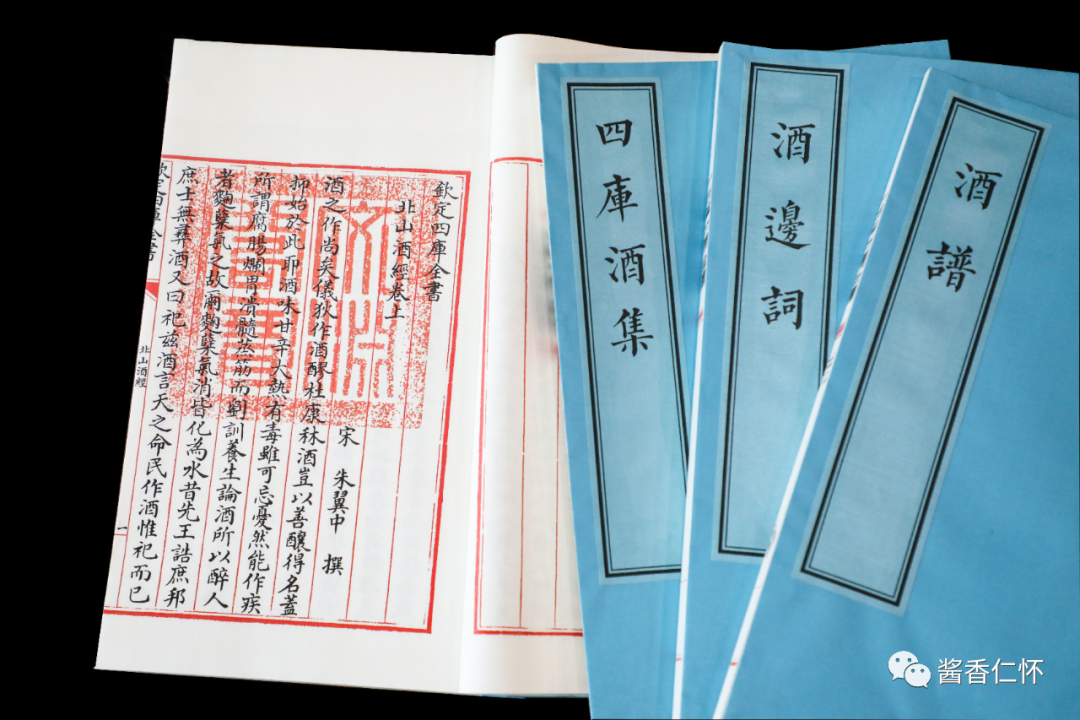 欽定四庫全書
北山酒經卷上
宋 朱翼中 撰
酒之作尚矣儀狄作酒醪杜康秫酒豈以善釀得名蓋
抑始於此耶酒味甘辛大熱有毒雖可忘憂然能作疾
所謂腐腸爛胃潰髓蒸筋而劉訓養生論酒所以醉人
者麴糵氣之故爾麴糵氣消皆化為水昔先王誥庶邦
庶士無彝酒又曰祀兹酒言天之命民作酒惟祀而已
欽定四庫全書
北山酒經
一
四庫酒集
酒邊詞
酒譜
酱香仁怀